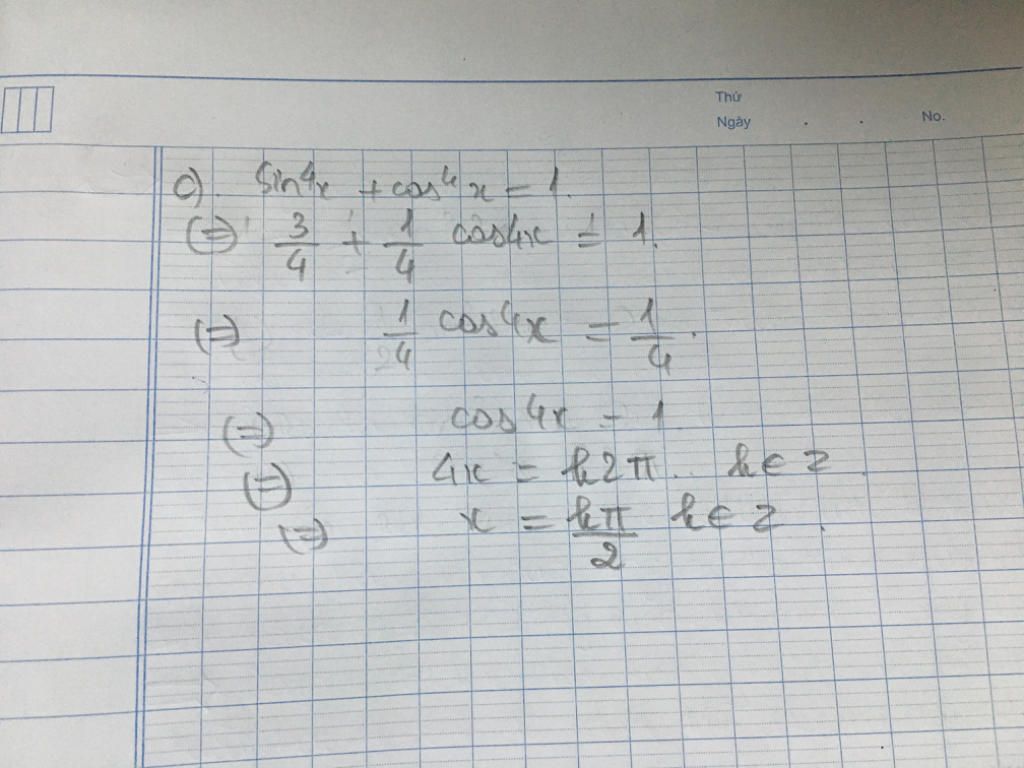 Thứ
Ngày . . No.
c). sin⁴x + cos⁴x = 1.
(=) 3/4 + 1/4 cos4x = 1.
(=) 1/4 cos4x = 1/4.
(=) cos4x = 1
(=) 4x = k2π. k∈Z
(=) x = kπ/2 k∈Z.